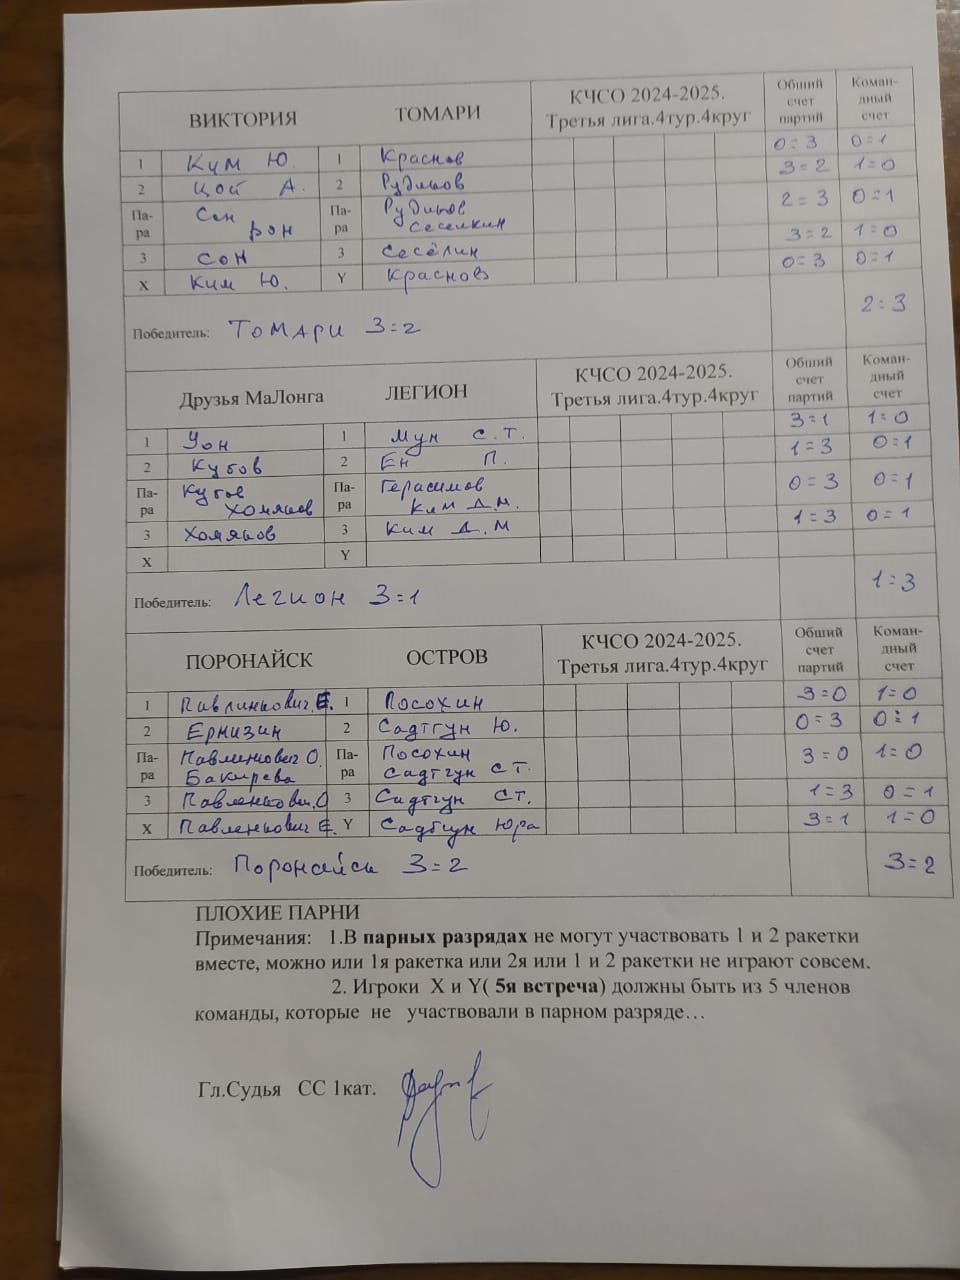 ВИКТОРИЯ ТОМАРИ КЧСО 2024-2025. Третья лига.4тур.4круг Общий счет партий Коман-дный счет
1 Ким Ю. 1 Краснов 0=3 0=1
2 Цой А. 2 Рудиков 3=2 1=0
Па-ра Сон рон Па-ра Рудиков Сеселкин 2=3 0=1
3 Сон 3 Сесёлин 3=2 1=0
X Ким Ю. Y Краснов 0=3 0=1
Победитель: Томари 3=2 2:3
Друзья МаЛонга ЛЕГИОН КЧСО 2024-2025. Третья лига.4тур.4круг Общий счет партий Коман-дный счет
1 Уон 1 Мун С.Т. 3=1 1=0
2 Кубов 2 Ен П. 1=3 0=1
Па-ра Кубов Хомяков Па-ра Герасимов Ким Д.М. 0=3 0=1
3 Хомяков 3 Ким Д.М 1=3 0=1
X Y
Победитель: Легион 3=1 1=3
ПОРОНАЙСК ОСТРОВ КЧСО 2024-2025. Третья лига.4тур.4круг Общий счет партий Коман-дный счет
1 Павлинкович.Е. 1 Посохин 3=0 1=0
2 Ермизин 2 Садтгун Ю. 0=3 0=1
Па-ра Павлинкович О. Бакирева Па-ра Посохин Садтгун СТ. 3=0 1=0
3 Павленкович.О 3 Садтгун СТ. 1=3 0=1
X Павленкович Е. Y Садтгун Юра 3=1 1=0
Победитель: Поронайск 3=2 3=2
ПЛОХИЕ ПАРНИ
Примечания: 1.В парных разрядах не могут участвовать 1 и 2 ракетки
вместе, можно или 1я ракетка или 2я или 1 и 2 ракетки не играют совсем.
2. Игроки X и Y( 5я встреча) должны быть из 5 членов
команды, которые не участвовали в парном разряде…
Гл.Судья СС 1кат.